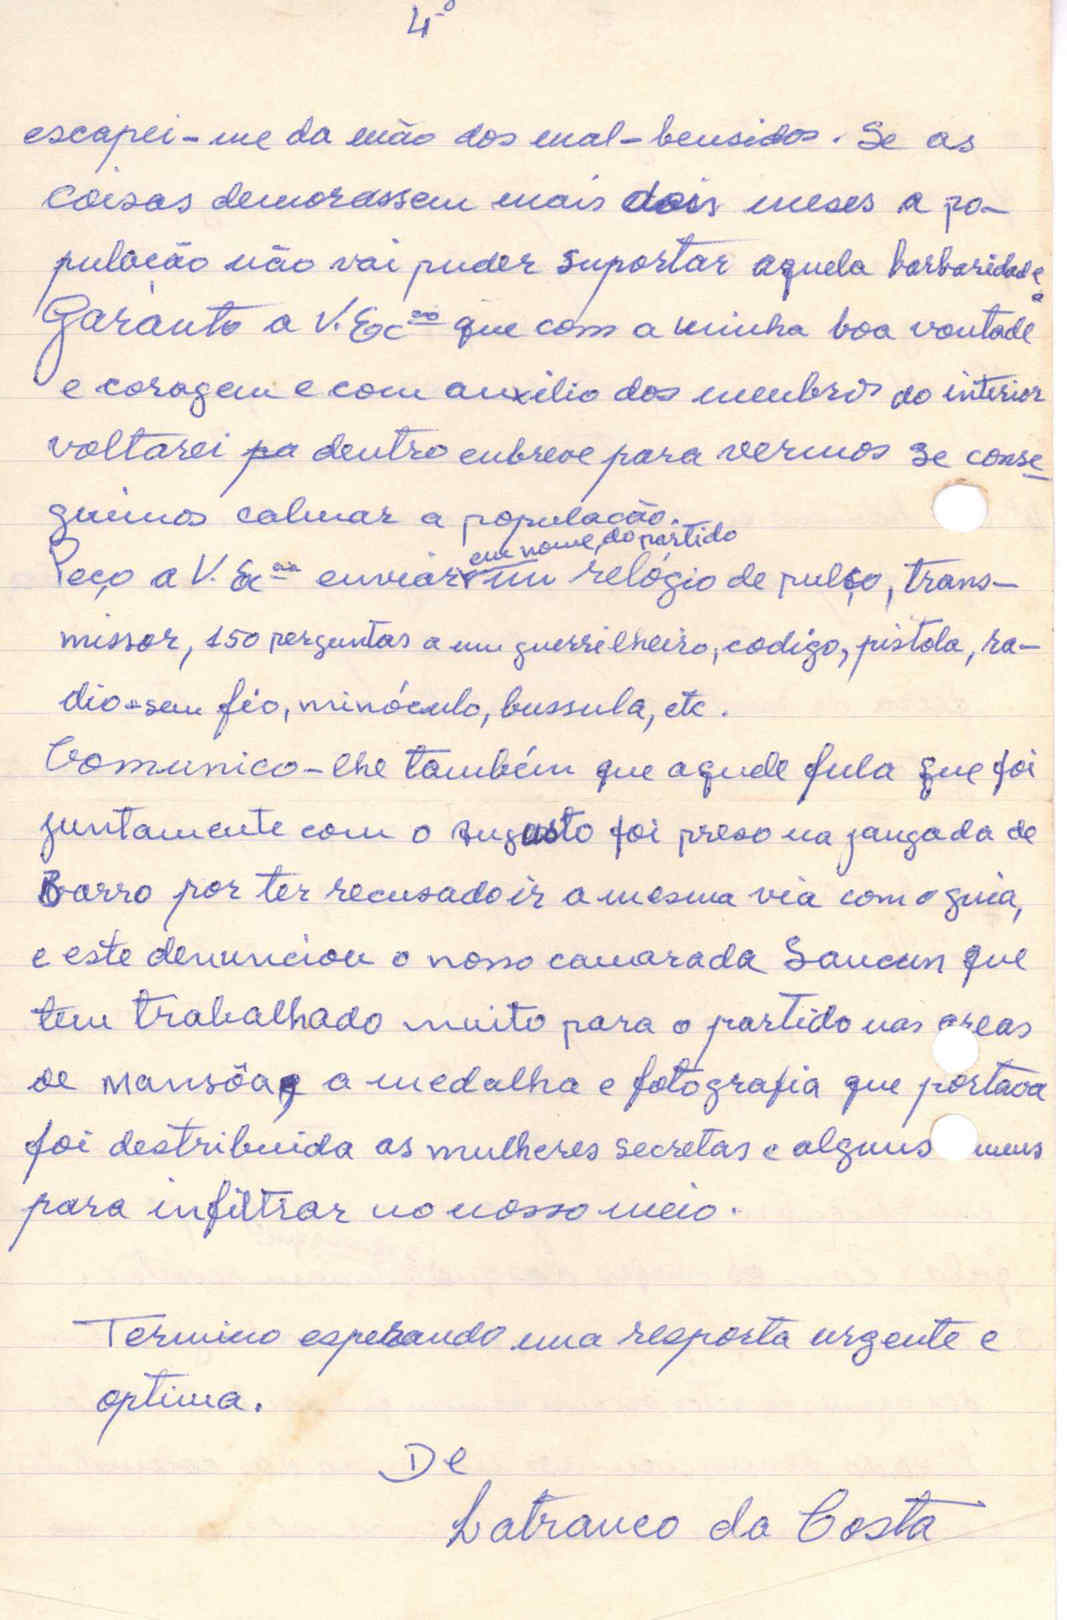 4º
escapei-me da mão dos mal-bensidos. Se as
coisas demorassem mais dois meses a po-
pulacão não vai puder suportar aquela barbaridade.
Garanto a V. Excªª que com a minha boa vontade
e coragem e com auxilio dos membros do interior
voltarei pa dentro enbreve para vermos se conse-
guimos calmar a populacão.
em nome do partido
Peço a V. Exªª enviar um relógio de pulso, trans-
missor, 150 perguntas a um guerrilheiro, codigo, pistola, ra-
dio-sem fio, minóculo, bussula, etc.
Comunico-lhe também que aquele fula que foi
juntamente com o Augusto foi preso na jangada de
Barro por ter recusado ir a mesma via com o guia,
e este denunciou o nosso camarada Sancun que
tem trabalhado muito para o partido nas areas
de Mansôa, a medalha e fotografia que portava
foi destribuida as mulheres secretas e alguns
para infiltrar no nosso meio.
Termino esperando uma resposta urgente e
optima.
De
Latranco da Costa